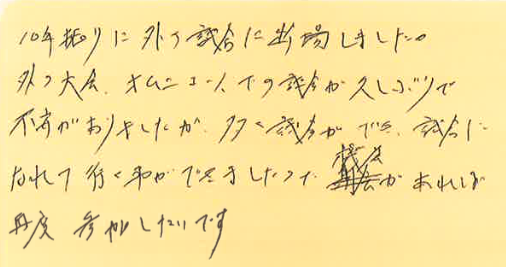 10年振りに外の試合に出場しました。
外の大会、オムニコートでの試合が久しぶりで
不安がありましたが、多く試合ができ、試合に
なれて行く事ができましたので、機会があれば
再度参加したいです